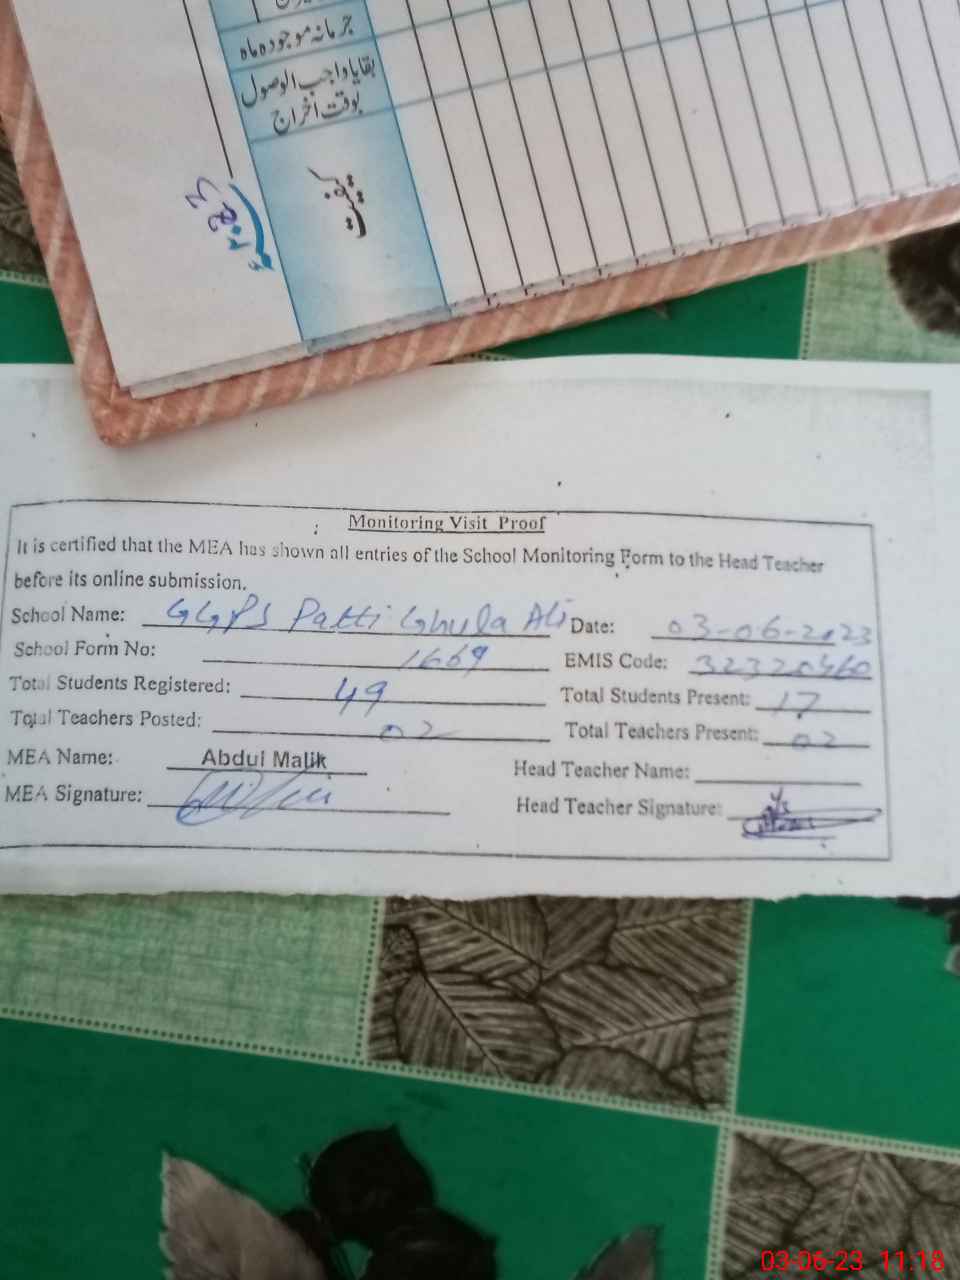 جرمانہ موجودہ ماہ
بقایا واجب الوصول
بوقت اخراج
Monitoring Visit Proof
It is certified that the MEA has shown all entries of the School Monitoring Form to the Head Teacher
before its online submission.
School Name: GGPS Patti Ghula Ali Date: 03-06-2023
School Form No: 1669 EMIS Code: 32320460
Total Students Registered: 49 Total Students Present: 17
Total Teachers Posted: 02 Total Teachers Present: 02
MEA Name: Abdul Malik Head Teacher Name:
MEA Signature: Head Teacher Signature:
03-06-23 11.18